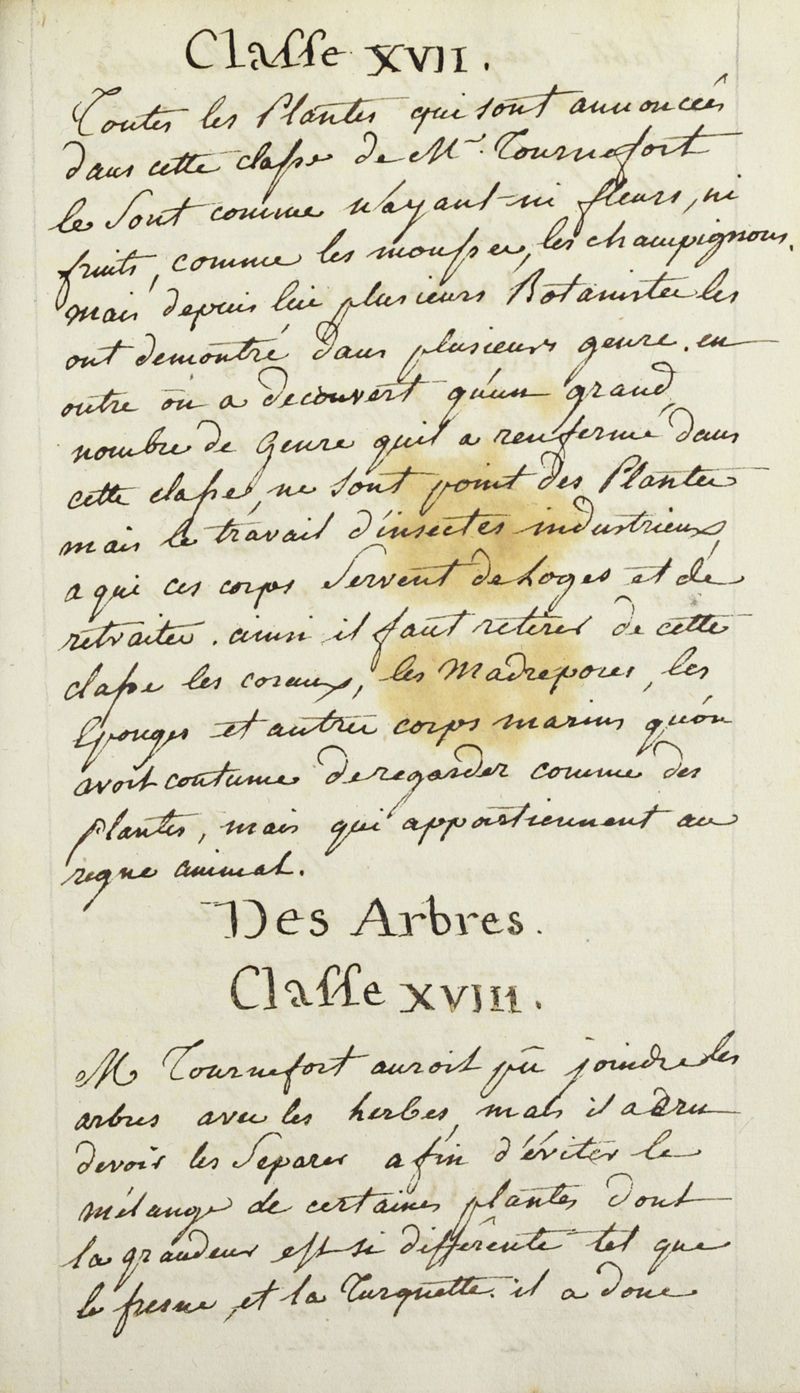 Classe XVII.
Toutes les Plantes qui sont annoncées
dans cette classe de Mr. Tournefort
le sont comme n'ayant ni fleurs, ni
fruits, comme les mousses, les champignons.
mais depuis lui plusieurs Botanistes les
ont demontré dans plusieurs genre. en
outre on a decouvert qu'un grand
nombre de Genre quil a renfermé dans
cette classe, ne sont point des Plantes
mais le travail d'insectes industrieux,
a qui ces corps servent de Loges et de
retraites. ainsi il faut retirer de cette
classe les coraux, les Madrepores, les
Eponges et autres corps marins qu'on
avoit coutume de regarder comme des
Plantes, mais qui appartiennent au
regne animal.
Des Arbres.
Classe XVIII.
M Tournefort auroit pû joindre les
arbres avec les herbes, mais il a cru
devoir les separer afin d'éviter le
mélange de certaines plantes dont
la grandeur est si différente tel que
le fresne, et la Turquette. il a donc